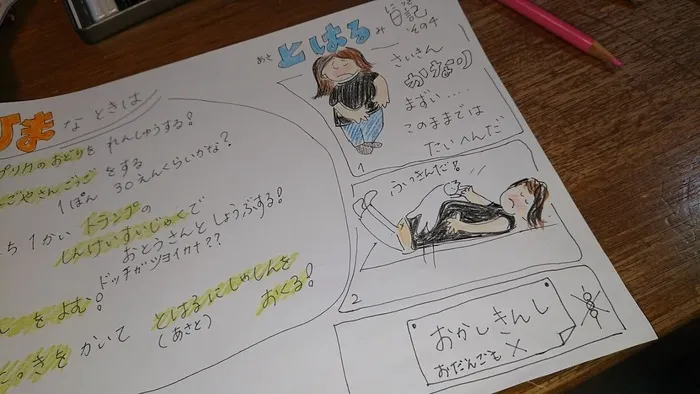 ひま なときは
プリカのおどりを れんしゅうする!
ごやさんごっこ をする
1ぽん 30えんくらいかな?
ち1かい トランプの
しんけいすいじゃくで
おとうさんと しょうぶする!
ドッチガツヨイカナ??
をよむ!
にっきを かいて とはるにしゃしんを
(あさと) おくる!
あさ とはる み
日記
その4
さいきん
かなり
まずい.....
このままでは
たいへんだ
1
ふっきんだ!
2
おかしきんし
おだんごも ×